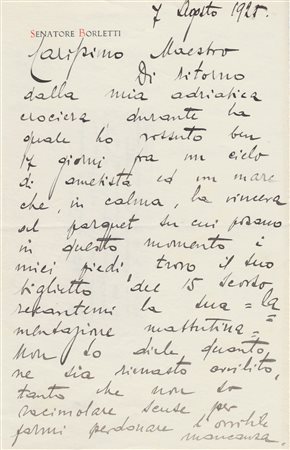 7 Agosto 1925.
SENATORE BORLETTI
Carissimo Maestro
Di ritorno
dalla mia adriatica
crociera, durante la
quale ho vissuto ben
17 giorni fra un cielo
di ametista ed un mare
che, in calma, la vinceva
sul parquet su cui posano
in questo momento i
miei piedi trovo il suo
biglietto del 15 scorso
recantemi la sua "la
mentazione mattutina"
Non so dirle quanto
ne sia rimasto avvilito,
tanto che non so
racimolare scuse per
farmi perdonare l'orribile
mancanza.